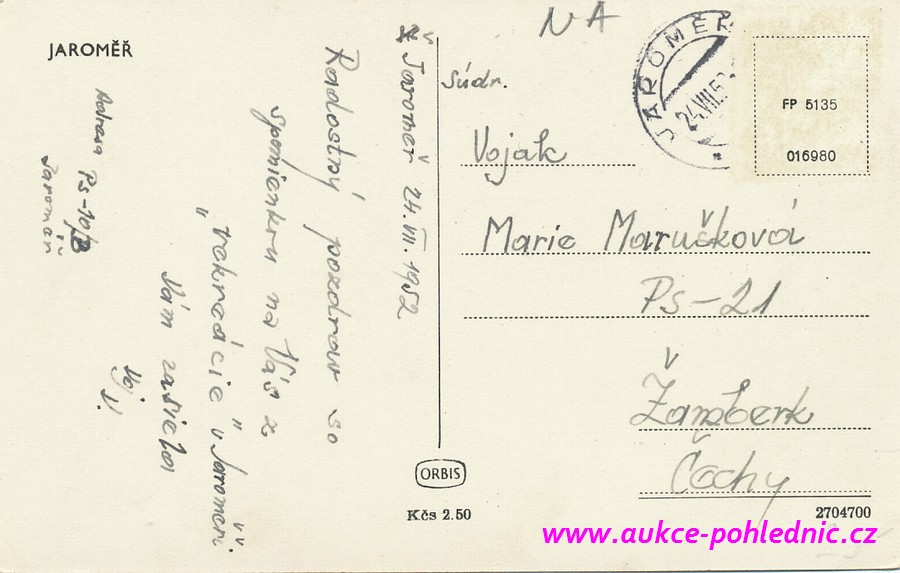 JAROMĚŘ
NA
JAROMĚŘ
24.VII.52
FP 5135
016980
Jaroměř 24.VII.1952
Radostný pozdrav so
spomienkou na Vás z
"rekreácie" v Jaroměři.
Vám zasiela
Voj.
Adresa Ps-10/B
Jaroměř
Súdr.
Vojak
Marie Marušková
Ps-21
Žamberk
Čechy
ORBIS
Kčs 2.50
2704700
www.aukce-pohlednic.cz